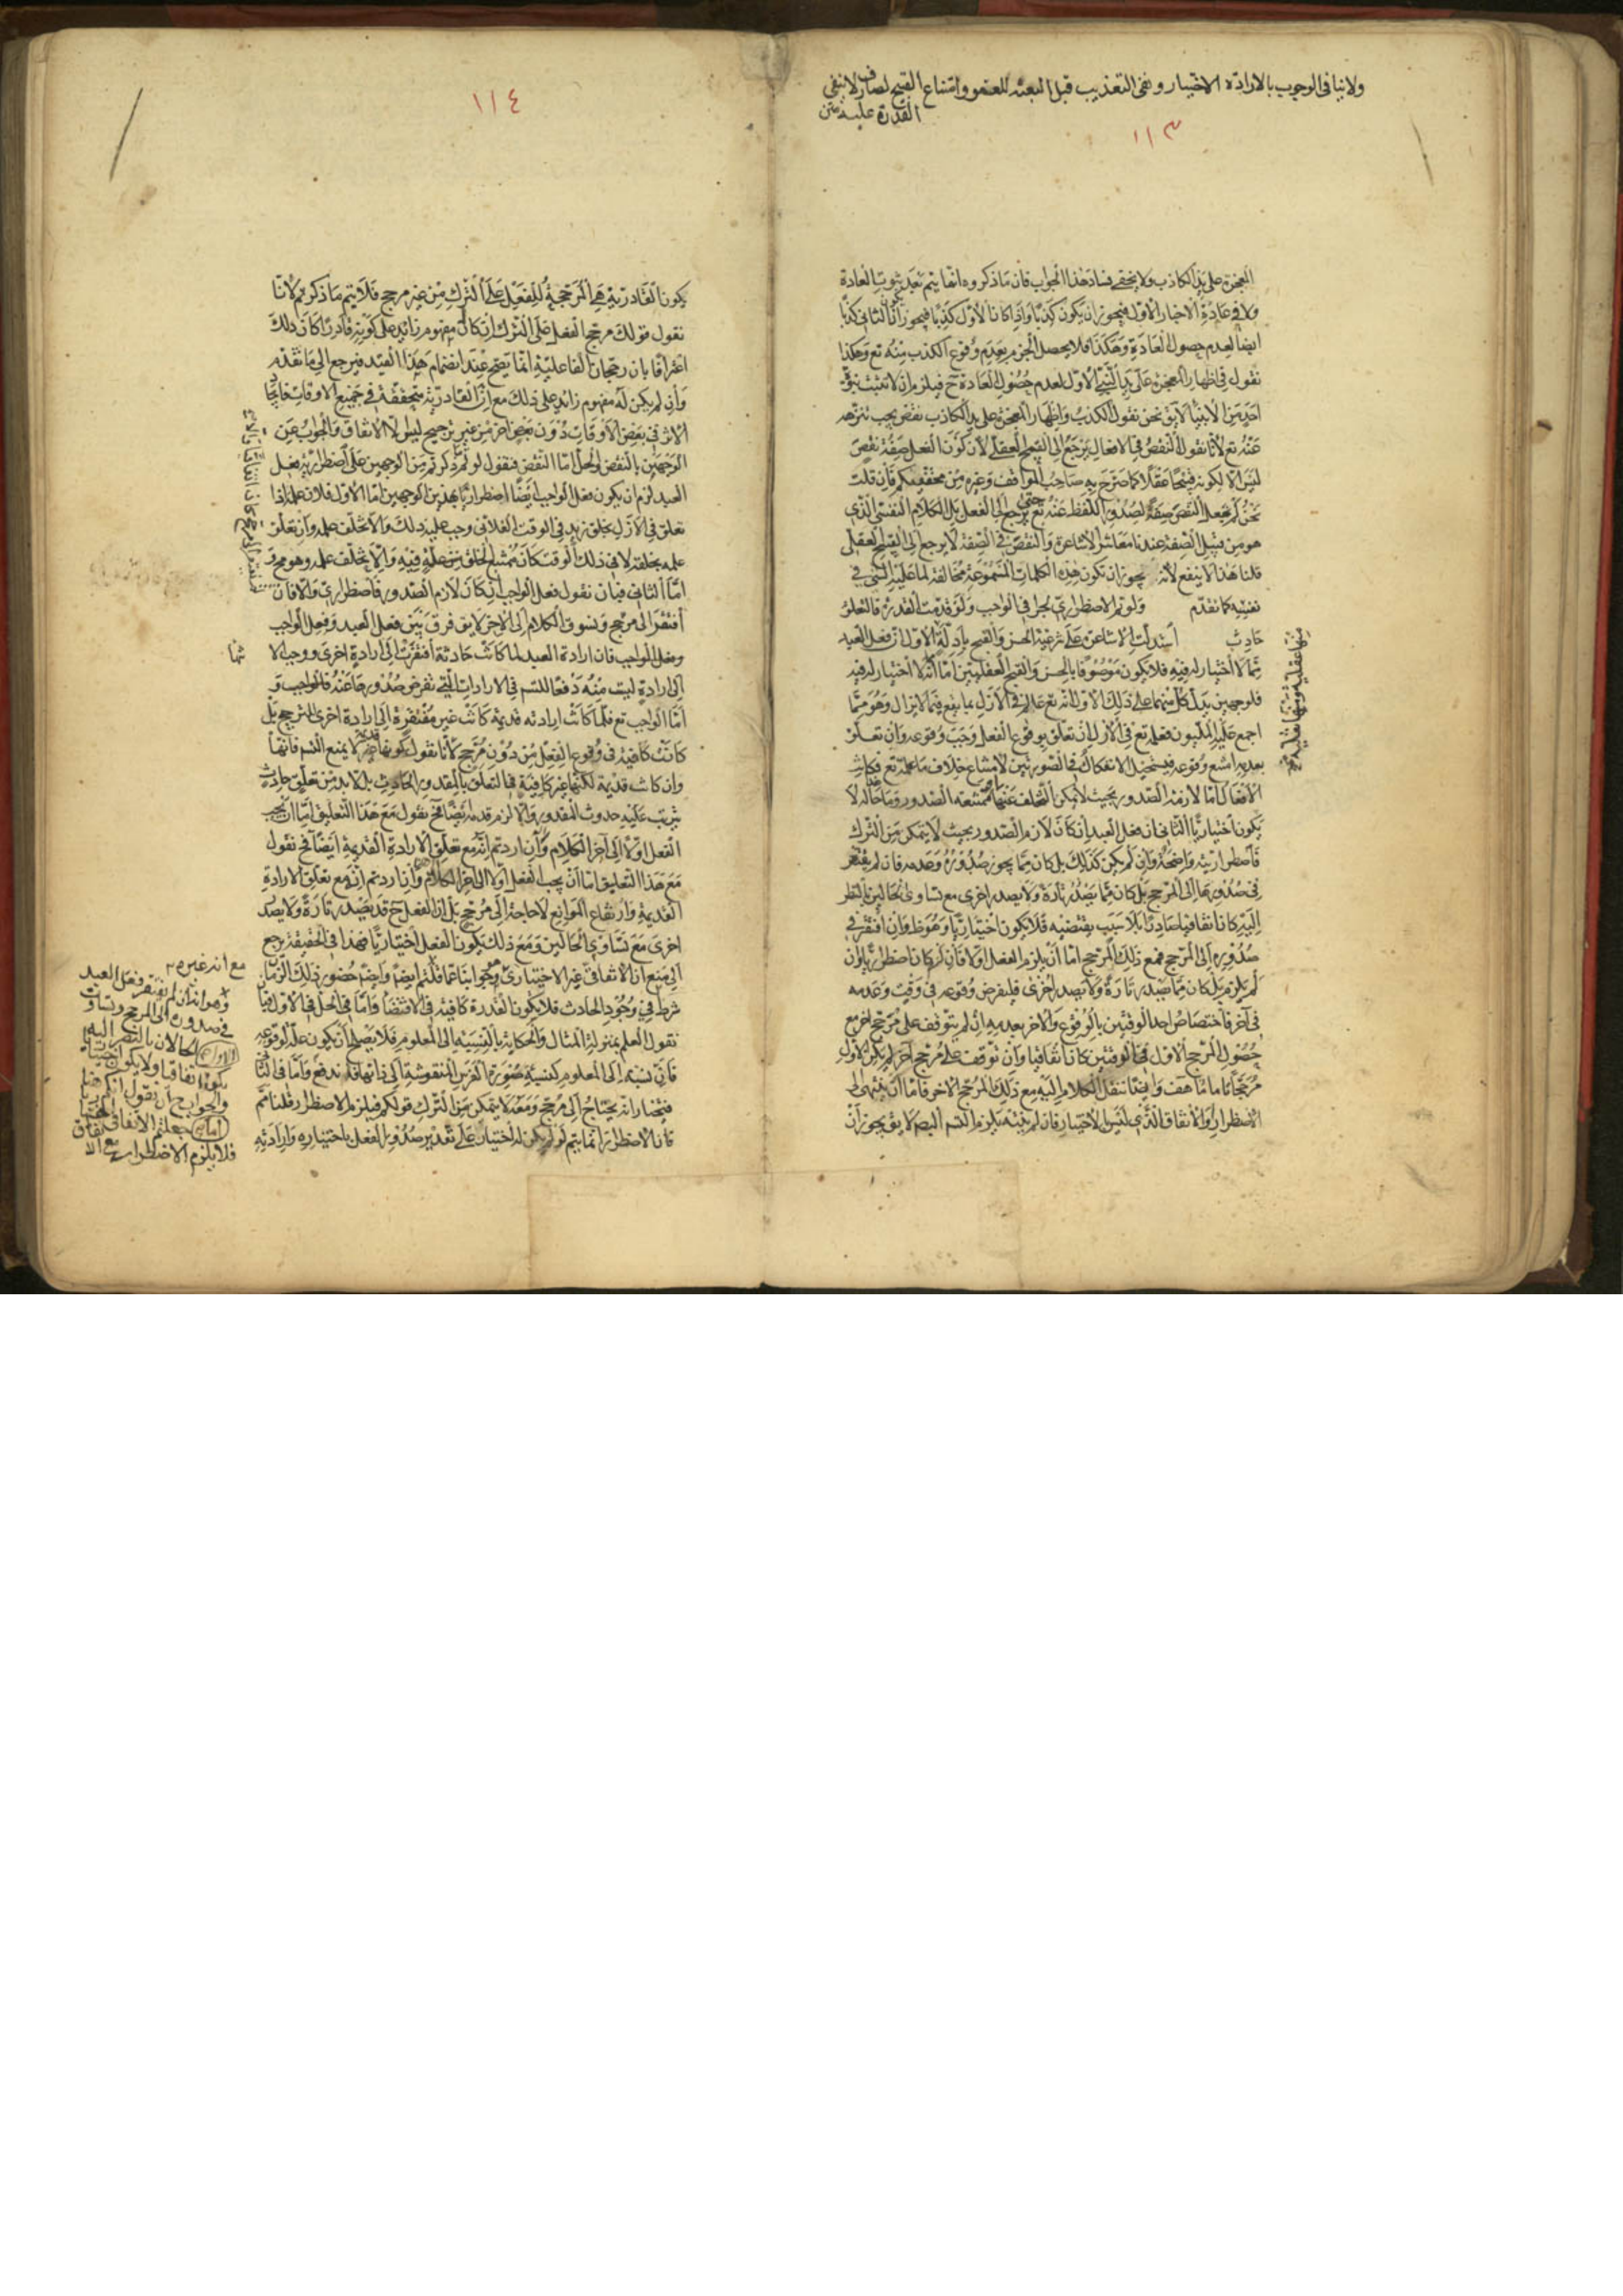 ولا ينافى الوجوب بالارادة الاختيار ونفى التعذيب قبل البعثة للعفو وامتناع القبيح لصارف لا ينفى
القدرة عليه متن
١١٣
المعجزة على يد الكاذب ولا يخفى فساد هذا الجواب فان ما ذكروه انما يتم بعد ثبوت العادة
ولا فى عادة الاخبار الاول فيجوز ان يكون كذبا واذا كان الاول كذبا فيجوز ان يكون الثانى كذبا
ايضا لعدم حصول العادة وهكذا فلا يحصل الجزم بعدم وقوع الكذب منه تع وهكذا
نقول فى اظهار المعجزة على يد النبى الاول لعدم حصول العادة ح فيلزم ان لا تثبت نبوة
احد من الانبياء لا يق نحن نقول الكذب واظهار المعجزة على يد الكاذب نقص يجب تنزهه
عنه تع لانا نقول النقص فى الافعال يرجع الى القبح العقلى لان كون الفعل صفة نقص
ليس الا لكونه قبيحا عقلا كما صرح به صاحب المواقف وغيره من محققيكم فان قلت
نحن لم نجعل النقص صفة لصدور اللفظ عنه تع حتى يرجع الى الفعل بل الكلام النفسى الذى
هو من قبيل الصفة عندنا معاشر الاشاعرة والنقص فى الصفة لا يرجع الى القبح العقلى
قلنا هذا لا ينفع لانه يجوز ان تكون هذه الكلمات المسموعة مخالفة لما عليه الشئ فى
نفسه كما تقدم ولو تم الاضطرارى لجرى فى الواجب ولو قدمت القدرة فالتعلق
حادث استدلت الاشاعرة على شرعية الحسن والقبح بادلة الاول ان فعل العبد
مما لا اختيار له فيه فلا يكون موصوفا بالحسن والقبح العقليين اما انه لا اختيار له فيه
فلوجهين يدل كل منهما على ذلك الاول انه تع عالم فى الازل بما يقع فيما لا يزال وهو مما
اجمع عليه المليون فعلمه تع فى الازل ان تعلق بوقوع الفعل وجب وقوعه وان تعلق
بعدمه امتنع وقوعه فيستحيل الانفكاك فى الصورتين لامتناع خلاف ما علمه تع فكانت
الافعال اما لازمة الصدور بحيث لا يمكن التخلف عنها او ممتنعة الصدور وما حاله لا
يكون اختياريا الثانى ان فعل العبد ان كان لازم الصدور بحيث لا يتمكن من الترك
فاضطراريته واضحة وان لم يكن كذلك بل كان مما يجوز صدوره وعدمه فان لم يفتقر
فى صدورها الى المرجح بل كان مما يصدر تارة ولا يصدر اخرى مع تساوى الحالين بالنظر
اليه كان اتفاقيا صادرا بلا سبب يقتضيه فلا يكون اختياريا وهو ظ وان افتقر فى
صدوره الى المرجح فمع ذلك المرجح اما ان يلزم الفعل اولا فان لزم كان اضطراريا وان
لم يلزم بل كان مما يصدر تارة ولا يصدر اخرى فليفرض وقوعه فى وقت وعدمه
فى آخر فاختصاص احد الوقتين بالوقوع والاخر بعدمه ان لم يتوقف على مرجح اخر مع
حصول المرجح الاول فى الوقتين كان اتفاقيا وان توقف على مرجح آخر لم يكن الاول
مرجحا تاما هف وايضا ننقل الكلام اليه مع ذلك المرجح الاخر فاما ان ينتهى الى
الاضطرار والاتفاق الذى ليس بالاختيار فان لم ينته يلزم التسلسل لا يق يجوز ان
١١٤
يكون القادرية هى المرجحة للفعل على الترك من غير مرجح فلا يتم ما ذكرتم لانا
نقول قولك مرجح الفعل على الترك ان كان مفهوم زائد على كونه قادرا كان ذلك
اعترافا بان رجحان الفاعلية انما يصح عند انضمام هذا القيد فيرجع الى ما تقدم
وان لم يكن له مفهوم زائد على ذلك مع ان القادرية متحققة فى جميع الاوقات
الاثر فى بعض الاوقات دون بعض اخر من غير ترجيح ليس الا الاتفاق والجواب عن
الوجهين بالنقض والحل اما النقض فنقول لو تم ما ذكرتم من الوجهين على اضطرارية فعل
العبد لزم ان يكون فعل الواجب ايضا اضطراريا بهذين الوجهين اما الاول فلان علمه اذا
تعلق فى الازل بخلق زيد فى الوقت الفلانى وجب عليه ذلك والا تخلف علمه وان تعلق
علمه بخلقه لا فى ذلك الوقت كان ممتنع الخلق عنه فيه والا تخلف علمه وهو مح
اما الثانى فبان نقول فعل الواجب ان كان لازم الصدور فاضطرارى والا فان
افتقر الى مرجح ونسوق الكلام الى الاخر لا يق فرق بين فعل العبد وفعل الواجب
وفعل الواجب فان ارادة العبد لما كانت حادثة افتقرت الى ارادة اخرى ووجب الا
الى ارادة ليست منه دفعا للتسلسل فى الارادات التى نفرض صدورها عنه فالواجب و
اما الواجب تع فلما كانت ارادته قديمة كانت غير مفتقرة الى ارادة اخرى للترجيح بل
كانت كافية فى وقوع الفعل من دون مرجح لانا نقول كونها قديمة لا يمنع القسم فانها
وان كانت قديمة لكنها غير كافية فى التعلق بالمقدور الحادث بل لا بد من تعلق حادث
يترتب عليه حدوث المقدور والا لزم قدمه ايضا فح نقول مع هذا التعليق اما ان يجب
الفعل اولا الى آخر الكلام وان اردتم انه مع تعلق الارادة القديمة ايضا فح نقول
مع هذا التعليق اما ان يجب الفعل اولا الى اخر الكلام وان اردتم انه مع تعلق الارادة
القديمة وارتفاع الموانع لا حاجة الى مرجح بل ان الفعل ح قد يصدر تارة ولا يصدر
اخرى مع تساوى الحالين ومع ذلك يكون الفعل اختياريا فهذا فى الحقيقة يرجع
الى منع ان الاتفاقى غير الاختيارى وجوابنا عما قلتم ايضا واحد حضور ذلك الزمان
شرط فى وجود الحادث فلا يكون القدرة كافية فى الاقتضاء واما فى الحل فى الاول فبان
نقول العلم بمنزلة المثال والحكاية بالنسبة الى المعلوم فلا يصلح ان يكون علة لوقوعه
فان نسبته الى المعلوم كنسبة صورة الفرس المنقوشة الى ذاتها فاندفع واما فى الثانى
فنختار انه يحتاج الى مرجح ومعه لا يتمكن من الترك قولكم فيلزم الاضطرار قلنا مم
فان الاضطرار انما يتم لو لم يكن له اختيار على تقدير صدور الفعل باختياره وارادته
مع انه غيره
وهو انه ان لم يفتقر فعل العبد
فى صدوره الى المرجح وتساوت
الحالان بالنظر اليه
يكون اتفاقيا ولا يكون اختياريا
والجواب ان نقول
فلا يلزم الاضطرار